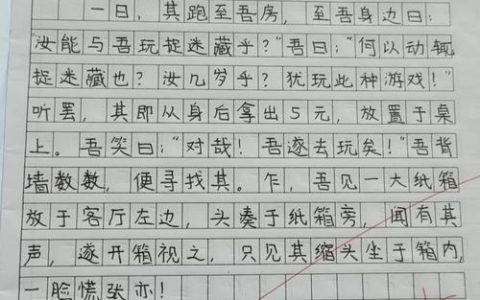 一日，其跑至吾房，至吾身边曰：
“汝能与吾玩捉迷藏乎？”吾曰：“何以动辄
捉迷藏也？汝几岁乎？犹玩此种游戏！”
听罢，其即从身后拿出5元，放置于桌
上。吾笑曰：“对哉！吾遂去玩矣！”吾背
墙数数，便寻找其。乍，吾见一大纸箱
放于客厅左边，头凑于纸箱旁，闻有其
声，遂开箱视之，只见其缩头坐于箱内，
一脸慌张亦！